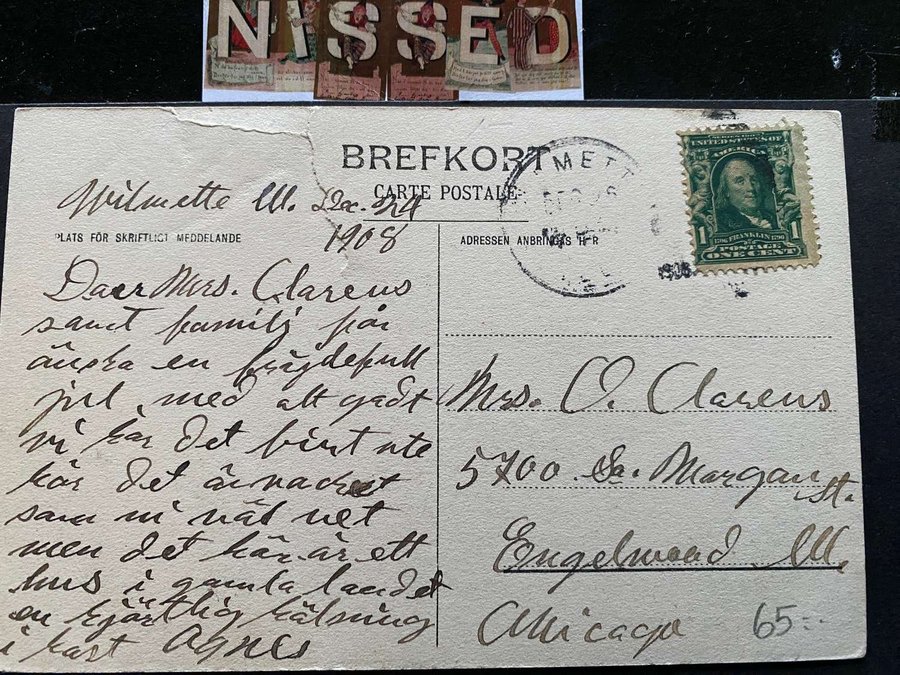 NISSED
BREFKORT
CARTE POSTALE
Wilmette Ill. Dec. 24
1908
PLATS FÖR SKRIFTLIGT MEDDELANDE
Daer Mrs. Clarens
samt familj får
änska en frögdefull
jul med alt gadt
vi har det fint ute
här det är vackert
sam ni näl vet
men det här är ett
hus i gamla landet
en hjärtlig hälsning
i hast Agnes
METT
DEC 26
SERIES 1902
UNITED STATES OF
AMERICA
1 FRANKLIN 1
POSTAGE
ONE CENT
1908
ADRESSEN ANBRINGAS HÄR
Mrs. O. Clarens
5700 So. Morgan
St.
Engelwood Ill.
Chicago
65:-